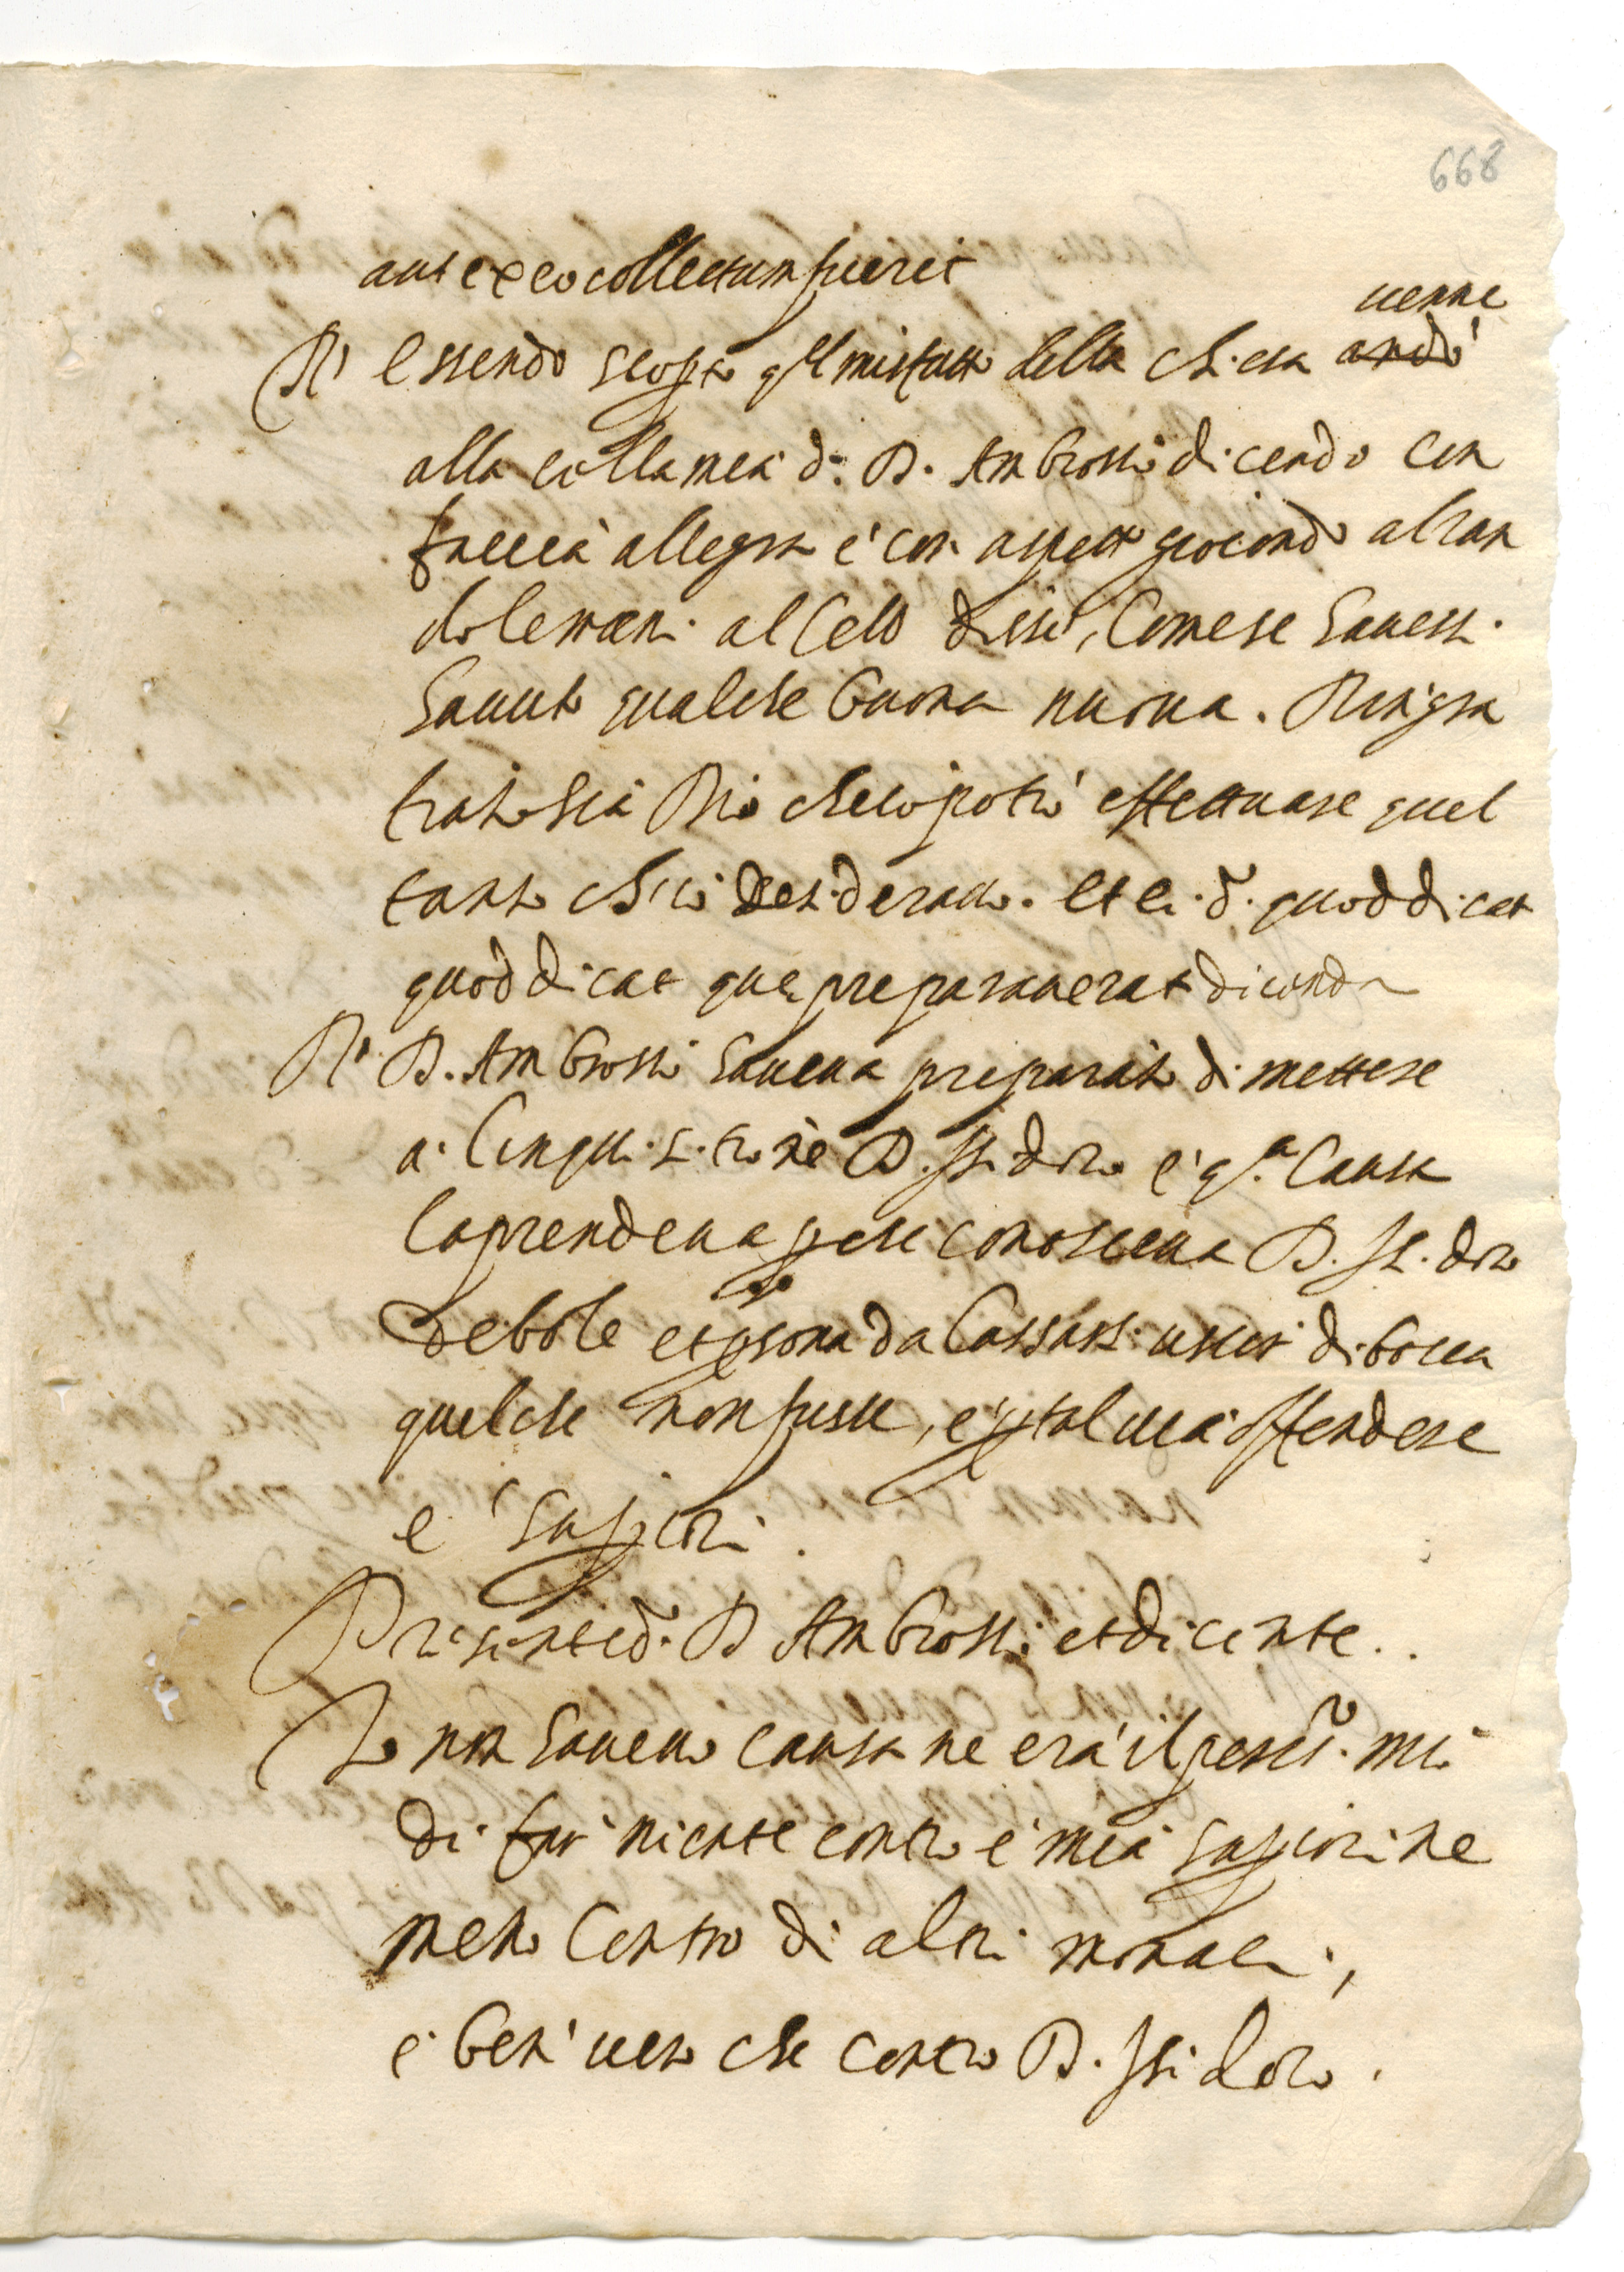 668
aut ex eo collectum fuerit
venne
R. Essendo scop.to q.l misfatto della chiesa andò
alla cella mea di D. Ambrosio dicendo con
faccia allegra e con aspetto giocondo alzan
do le mani al Celo disse, Come se havessi
havuto qualche buona nuova. Ringra
tiato sia Dio che io potrò effettuare quel
tanto ch'io desideravo. Et ei d. quod dicat
quod dicat que preparaverat dicenda
R. D. Ambrosio haveva preparato di mettere
a l'inquisitione D. Isidoro e q.a causa
la prendeva p che conosceva D. Isidoro
debole et psona da lassarsi uscir di bocca
quel che non fusse, e p tal via offendere
e' Supiori.
Presente d. D Ambrosio et dicente..
Io non havevo causa ne era il pensr. mio
di far niente contro e' miei supiori ne
meno contro di altri monaci,
e' ben vero che contro D. Isidoro.